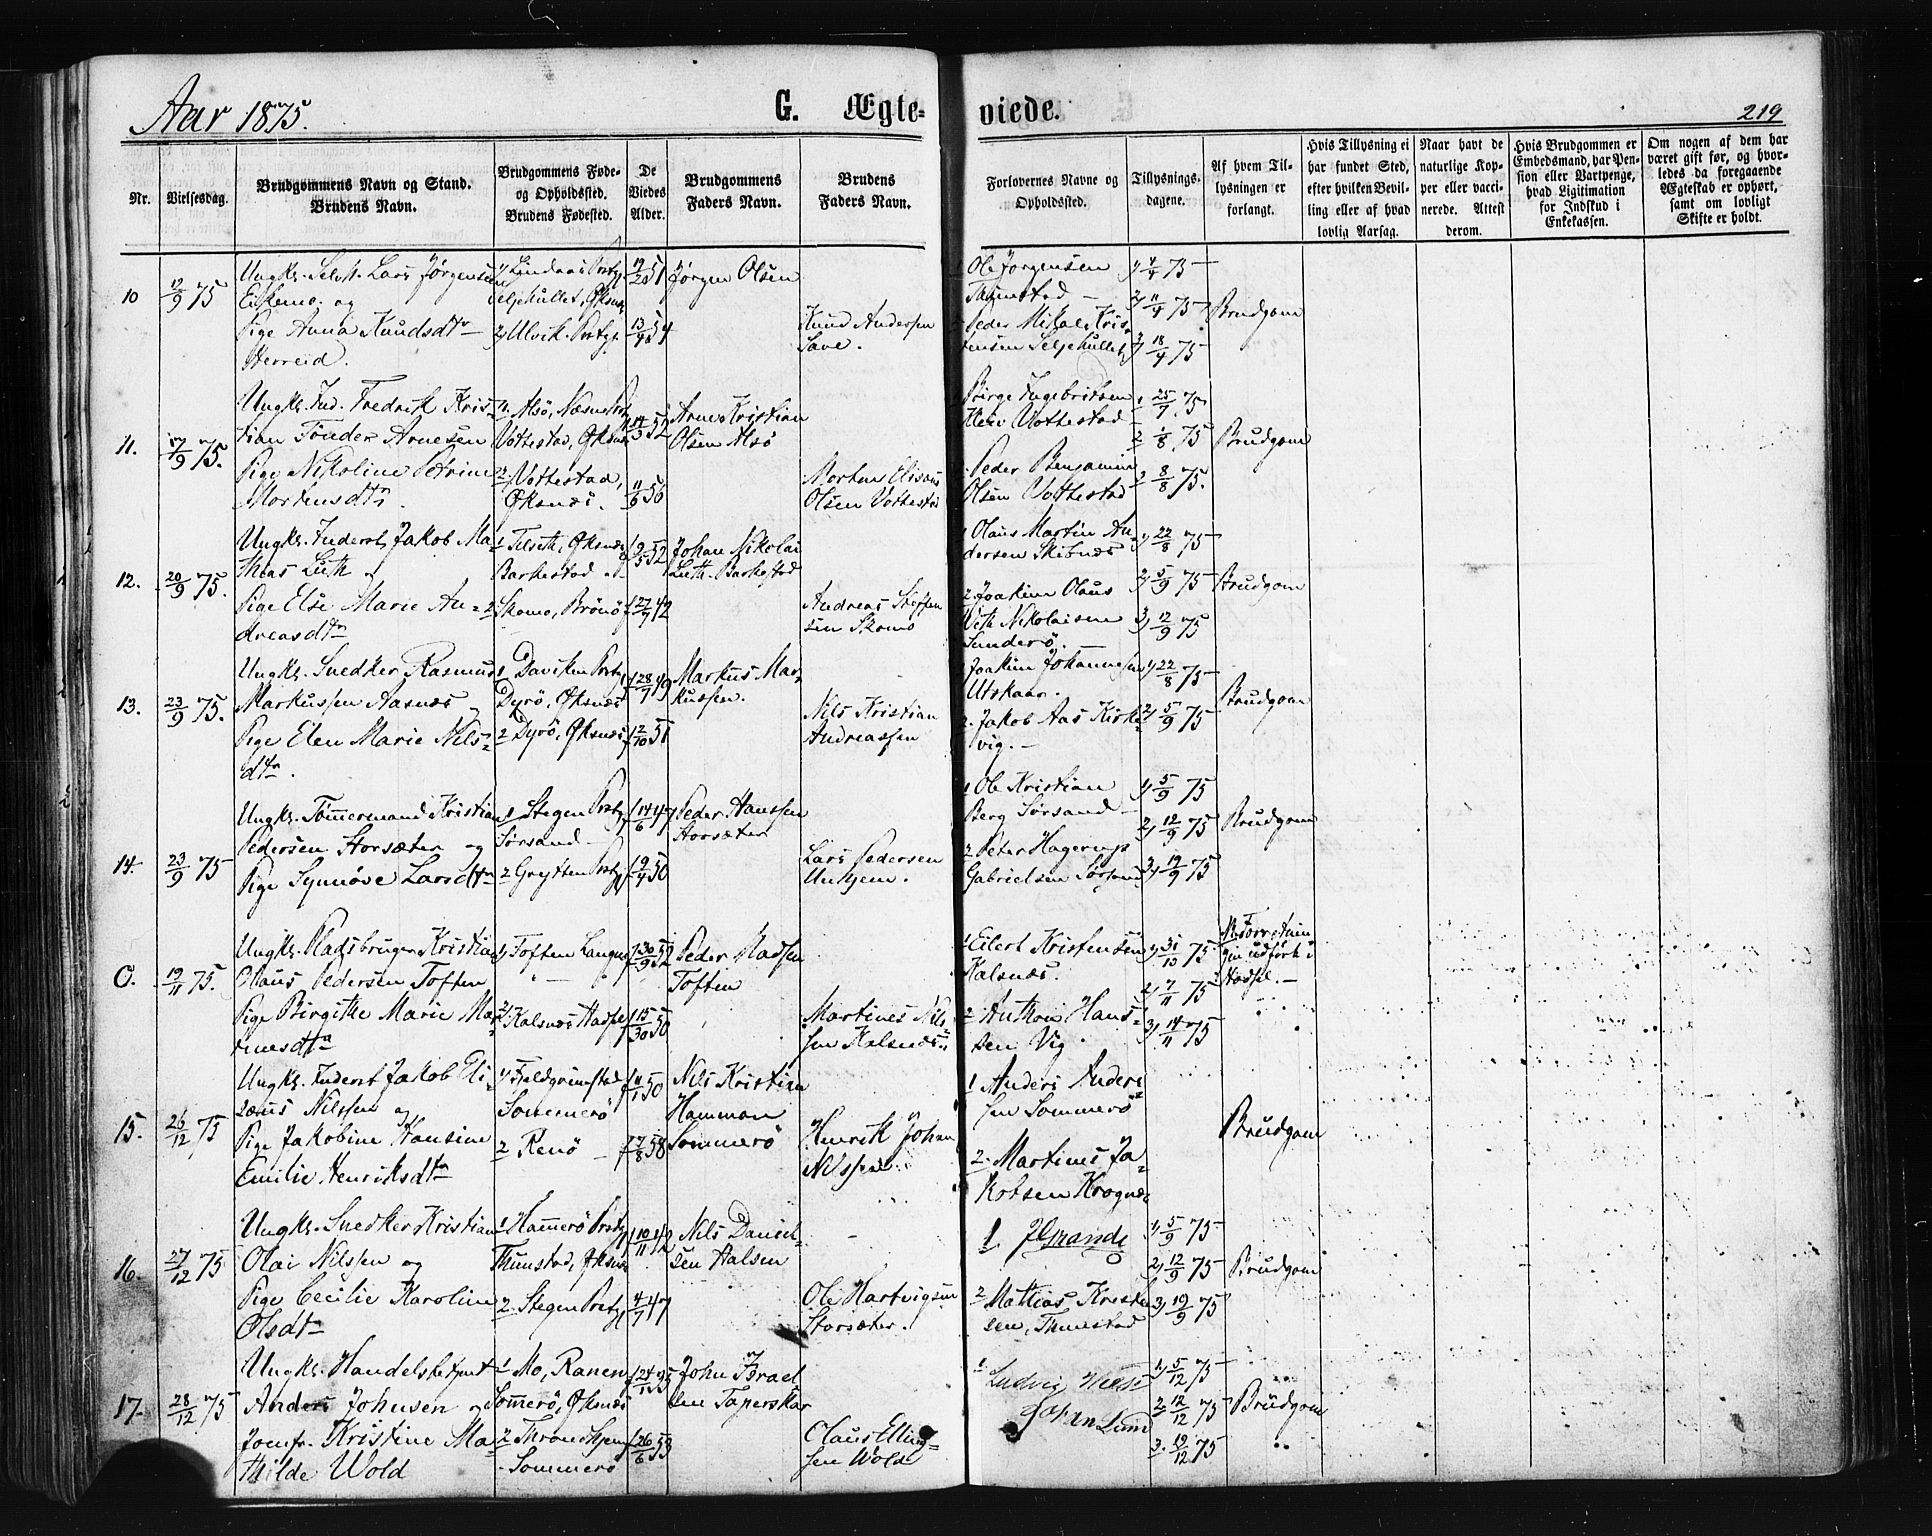 Aar 1875.
G. Ægte-
viede.
219
Nr.
Vielsesdag.
Brudgommens Navn og Stand.
Brudens Navn.
Brudgommens Føde-
og Opholdssted.
Brudens Fødested.
De
Viedes
Alder.
Brudgommens
Faders Navn.
Brudens
Faders Navn.
Forlovernes Navne og
Opholdssted.
Tillysnings-
dagene.
Af hvem Til-
lysningen er
forlangt.
Hvis Tillysning ei
har fundet Sted,
efter hvilken Bevil-
ling eller af hvad
lovlig Aarsag.
Naar havt de
naturlige Kop-
per eller vacci-
nerede. Attest
derom.
Hvis Brudgommen er
Embedsmand, har Pen-
sion eller Vartpenge,
hvad Ligitimation
for Indskud i
Enkekassen.
Om nogen af dem har
været gift før, og hvor-
ledes da foregaaende
Ægteskab er ophørt,
samt om lovligt
Skifte er holdt.
10
12/9 75
Ungk. Selvst. Lars Jørgensen
og
Pige Anna Knudsdtr
Herreid.
1) Lindaas Prstgj
Seljehullet, Øksnæs
2) Ulvik Prstgj.
19/2 51
13/4 54
Jørgen Olsen
Knud Andersen
Save.
Ole Jørgensen
Tunstad
Peder Mikal Kris-
tensen Seljehullet
1) 4/4 75
2) 11/4 75
3) 18/4 75
Brudgom
11.
17/9 75.
Ungk. Ind. Fredrik Kris-
tian Tønder Arnesen
Pige Nikoline Petrine
Mortensdtr.
1. Alsø, Næsne Prst
Vottestad, Øksnæs
2 Vottestad,
Øksnæs.
14/3 52
11/6 56
Arne Kristian
Olsen Alsø
Morten Elisæus
Olsen Vottestad
Birge Ingebritsen
Klein Vottestad
Peder Benjamin
Olsen Vottestad
1 25/7 75
2 1/8 75
3 8/8 75.
Brudgom
12.
20/9 75.
Ungk. Inderst Jakob Ma-
thias Luth
Pige Else Marie An-
dreasdtr
1 Tilseth, Øksnæs
Barkestad
2 Skomo, Brönö
9/5 52
27/7 42
Johan Nikolai
Luth Barkestad
Andreas Steffen
sen Skomo
1 Olaus Martin An-
dersen Skibnæs
2 Joakim Olaus
Veth Nikolaisen
Sunderö.
1) 22/8 75
2) 5/9 75
3) 12/9 75
Brudgom
13.
23/9 75.
Ungk. Snedker Rasmus
Markussen Aasnæs
Pige Elen Marie Nils-
dtr.
1 Daviken Prstgj
Dyrö, Øksnæs
2 Dyrö, Øksnæs
28/7 49
2/10 51
Markus Mar-
kussen.
Nils Kristian
Andreassen
1 Joakim Johannesen
Utskaar.
2. Jakob Aas Kirke-
vig.
1) 22/8 75
2) 5/9 75
Brudgom
14.
23/9 75
Ungk. Tömmermand Kristian
Pedersen Storsæter og
Pige Synnöve Larsdtr
1 Stegen Prstgj
Sörsand
2 Grytten Prstgj
14/6 47
9/4 50
Peder Hansen
Storsæter
Lars Pedersen
Unhjem.
1 Ole Kristian
Berg Sörsand
2 Peter Hagerup
Gabrielsen Sörsand
1) 5/9 75
2) 12/9 75
3) 19/9 75
Brudgom
O.
19/11 75.
Ungk. Pladsbruger Kristian
Olaus Pedersen Toften
Pige Birgitte Marie Mar-
tinesdtr
1) Toften Langenæs
2) Kalsnæs Hadsel
30/9 52
15/30 50
Peder Madsen
Toften
Martines Nils-
sen Kalsnæs
1 Eilert Kristensen
Kalsnæs.
2 Anthon Han-
sen Vig
1) 31/10 75
2) 7/11 75
3) 14/11 75
Forretnin-
gen udført i
Hadsel.
15.
26/12 75
Ungk. Inderst Jakob Eli-
zæus Nilssen og
Pige Jakobine Hansine
Emilie Henriksdtr
1) Fjeldgrimstad
Sommerö
2 Renö
11/1 50
7/8 58
Nils Kristian
Hammon
Sommerö
Henrik Johan
Nilssen
1 Anders Anders
sen Sommerö
2. Martines Ja-
kobsen Krognæs
Brudgom
16.
27/12 75
Ungk. Snedker Kristian
Olai Nilssen og
Pige Cecilie Karoline
Olsdtr
1 Hammerö Prstgj
Thunstad, Øksnæs
2 Stegen Prstgj
10/11 42
4/7 47
Nils Daniel-
sen Halsen
Ole Hartvigsen
Storsæter.
1 J Grande
2 Mathias Kriste
sen, Thunstad
1) 5/9 75
2) 12/9 75
3) 19/9 75
Brudgom
17.
28/12 75
Ungk. Handelsbetjent
Anders Johnsen og
Jomfr. Kristine Ma-
thilde Wold
1 Mo, Ranen
Sommerö, Øksnæs
2 Throndhjem
Sommerö
26/6 53
John Israel
sen Taperskar
Olaus Elling-
sen Wold
1 Ludvig
Johan Lund
1) 5/12 75
2 12/12 75
3. 19/12 75
Brudgom